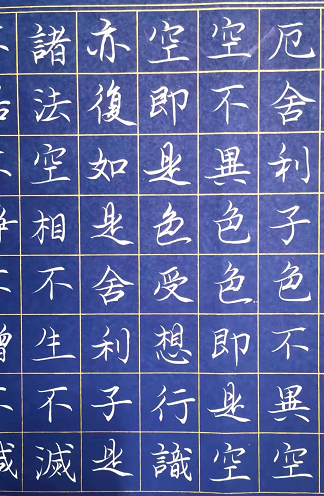 厄舍利子色不異空
空不異色色即是空
空即是色受想行識
亦復如是舍利子是
諸法空相不生不滅